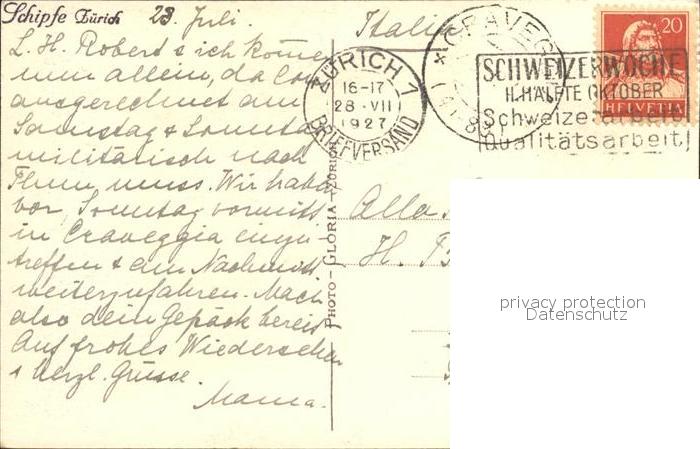 Schipfe Zürich 28. Juli.
L. H. Robert & ich kommen
nun allein, da
ausgerechnet am
Samstag & Sonntag
militärisch nach
Thun, muss. Wir haben
vor, Sonntag vormitt
in Craveggia einzu-
treffen & am Nachmitt
weiterzufahren. Mach
also dein Gepäck bereit
Auf frohes Wiedersehen
& herzl. Grüsse.
Mama.
PHOTO - GLORIA - ZÜRICH
Italie
ZÜRICH 1
16-17
28.VII
1927
BRIEFVERSAND
CRAVEG
SCHWEIZERWOCHE
II. HÄLFTE OKTOBER
Schweizerarbeit
Qualitätsarbeit
20
HELVETIA
Alla
H.
privacy protection
Datenschutz